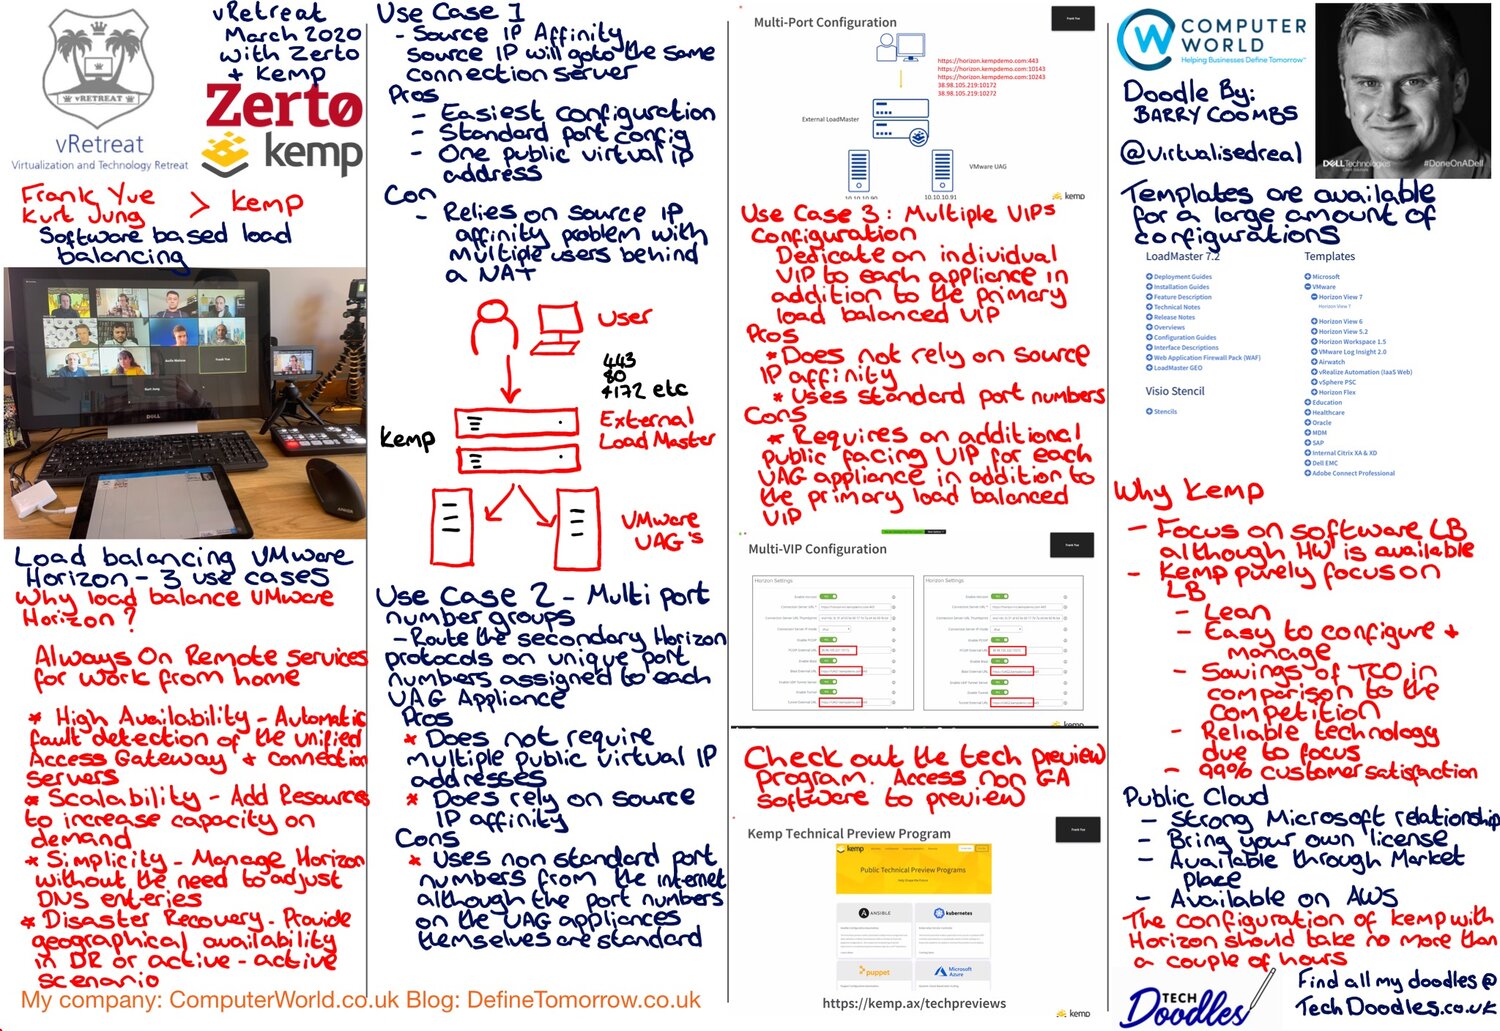 vRETREAT
vRetreat
Virtualization and Technology Retreat
vRetreat
March 2020
with Zerto
+ Kemp
Zerto
kemp
Frank Yue
Kurt Jung
> kemp
Software based load
balancing
DELL
ANKER
Load balancing VMware
Horizon - 3 use cases
Why load balance VMware
Horizon?
Always On Remote Services
for work from home
* High Availability - Automatic
fault detection of the unified
Access Gateway + Connection
servers
* Scalability - Add Resources
to increase capacity on
demand
* Simplicity - Manage Horizon
without the need to adjust
DNS enteries
* Disaster Recovery - Provide
geographical availability
in DR or active-active
scenario
My company: ComputerWorld.co.uk Blog: DefineTomorrow.co.uk
Use Case 1
- Source IP Affinity
source IP will goto the same
connection server
Pros
- Easiest configuration
- Standard port config
- One public virtual ip
address
Con
- Relies on source IP
affinity problem with
multiple users behind
a NAT
User
443
80
4172 etc
Kemp
External
LoadMaster
VMware
UAG's
Use Case 2 - Multi port
number groups
- Route the secondary Horizon
protocols on unique port
numbers assigned to each
UAG Appliance
Pros
* Does not require
multiple public virtual IP
addresses
* Does rely on source
IP affinity
Cons
* Uses non standard port
numbers from the internet
although the port numbers
on the UAG appliances
themselves are standard
Multi-Port Configuration
Frank Yue
https://horizon.kempdemo.com:443
https://horizon.kempdemo.com:10143
https://horizon.kempdemo.com:10243
38.98.105.219:10172
38.98.105.219:10272
External LoadMaster
VMware UAG
10.10.10.90
10.10.10.91
kemp
Use Case 3: Multiple VIPs
Configuration
Dedicate on individual
VIP to each appliance in
addition to the primary
load balanced VIP
Pros
* Does not rely on source
IP affinity
* Uses standard port numbers
Cons
* Requires an additional
public facing VIP for each
UAG appliance in addition to
the primary load balanced
VIP
Multi-VIP Configuration
Frank Yue
Horizon Settings
Horizon Settings
kemp
Check out the tech preview
program. Access non GA
software to preview
Kemp Technical Preview Program
Frank Yue
kemp
Public Technical Preview Programs
ANSIBLE
kubernetes
puppet
Microsoft
Azure
https://kemp.ax/techpreviews
kemp
COMPUTER
WORLD
Helping Businesses Define Tomorrow™
Doodle By:
BARRY COOMBS
@virtualisedreal
DELLTechnologies
#DoneOnADell
Templates are available
for a large amount of
configurations
LoadMaster 7.2
Deployment Guides
Installation Guides
Feature Description
Technical Notes
Release Notes
Overviews
Configuration Guides
Interface Descriptions
Web Application Firewall Pack (WAF)
LoadMaster GEO
Visio Stencil
Stencils
Templates
Microsoft
VMware
Horizon View 7
Horizon View 7
Horizon View 6
Horizon View 5.2
Horizon Workspace 1.5
VMware Log Insight 2.0
Airwatch
vRealize Automation (IaaS Web)
vSphere PSC
Horizon Flex
Education
Healthcare
Oracle
MDM
SAP
Internal Citrix XA & XD
Dell EMC
Adobe Connect Professional
Why Kemp
- Focus on software LB
although HW is available
- Kemp purely focus on
LB
- Lean
- Easy to configure +
manage
- Savings of TCO in
comparison to the
competition
- Reliable technology
due to focus
- 99% customer satisfaction
Public Cloud
- Strong Microsoft relationship
- Bring your own license
- Available through Market
Place
- Available on AWS
The configuration of kemp with
Horizon should take no more than
a couple of hours
TECH
Doodles
Find all my doodles @
TechDoodles.co.uk